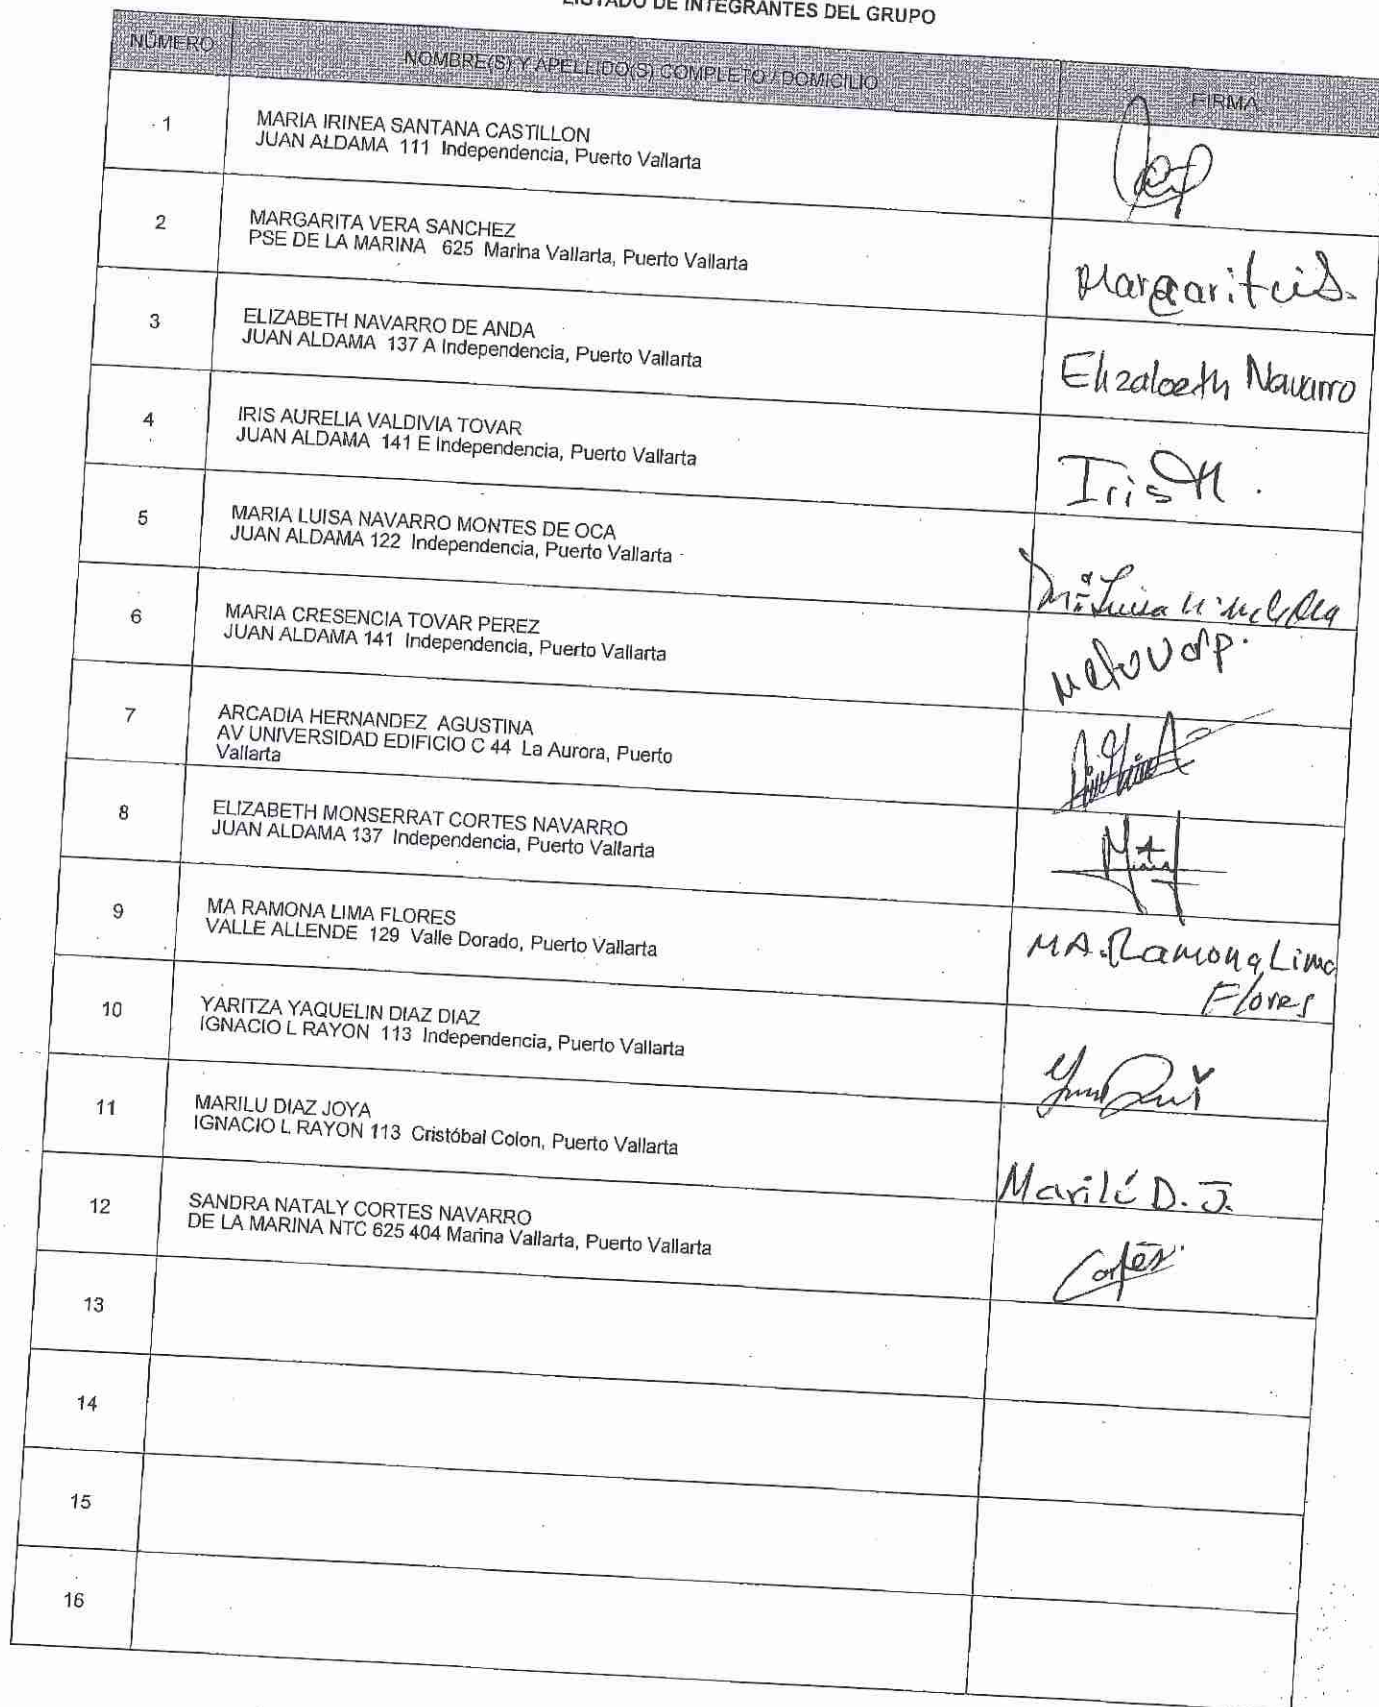 LISTADO DE INTEGRANTES DEL GRUPO
NÚMERO NOMBRE(S) Y APELLIDO(S) COMPLETO / DOMICILIO FIRMA
1 MARIA IRINEA SANTANA CASTILLON
JUAN ALDAMA 111 Independencia, Puerto Vallarta
2 MARGARITA VERA SANCHEZ
PSE DE LA MARINA 625 Marina Vallarta, Puerto Vallarta
3 ELIZABETH NAVARRO DE ANDA
JUAN ALDAMA 137 A Independencia, Puerto Vallarta
Elizabeth Navarro
4 IRIS AURELIA VALDIVIA TOVAR
JUAN ALDAMA 141 E Independencia, Puerto Vallarta
Iris
5 MARIA LUISA NAVARRO MONTES DE OCA
JUAN ALDAMA 122 Independencia, Puerto Vallarta
Mª Luisa
6 MARIA CRESENCIA TOVAR PEREZ
JUAN ALDAMA 141 Independencia, Puerto Vallarta
7 ARCADIA HERNANDEZ AGUSTINA
AV UNIVERSIDAD EDIFICIO C 44 La Aurora, Puerto
Vallarta
8 ELIZABETH MONSERRAT CORTES NAVARRO
JUAN ALDAMA 137 Independencia, Puerto Vallarta
9 MA RAMONA LIMA FLORES
VALLE ALLENDE 129 Valle Dorado, Puerto Vallarta
MA. Ramona Lima
Flores
10 YARITZA YAQUELIN DIAZ DIAZ
IGNACIO L RAYON 113 Independencia, Puerto Vallarta
11 MARILU DIAZ JOYA
IGNACIO L RAYON 113 Cristóbal Colon, Puerto Vallarta
Marilú D. J.
12 SANDRA NATALY CORTES NAVARRO
DE LA MARINA NTC 625 404 Marina Vallarta, Puerto Vallarta
Cortés
13
14
15
16